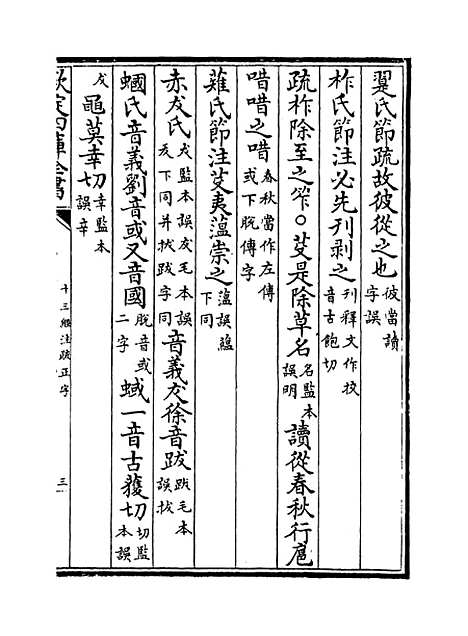 翨氏節疏故彼從之也彼當讀字誤
柞氏節注必先刋剥之刋釋文作挍音古飽切
疏柞除至之笮○芟是除草名名監本誤明讀從春秋行扈
唶唶之唶春秋當作左傳或下脫傳字
薙氏節注芟夷薀崇之薀誤蘊下同
赤犮氏犮監本誤犮毛本誤友下同并拔跋字同音義犮徐音跋跋毛本誤拔
蟈氏音義劉音或又音國脫音或二字蜮一音古蒦切切監本誤
犮黽莫幸切幸監本誤辛
欽定四庫全書
十三經注疏正字
三